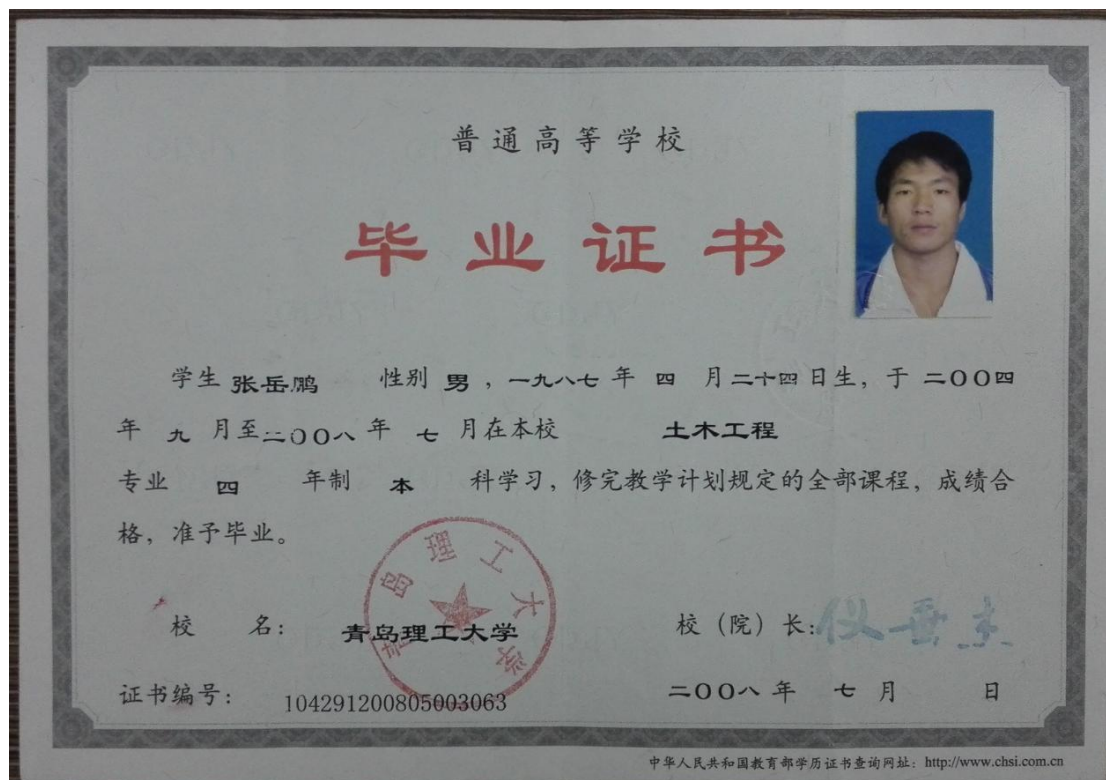 普通高等学校
毕业证书
学生 张岳鹏 性别 男 ，一九八七 年 四 月二十四日生，于 二〇〇四
年 九 月至二〇〇八 年 七 月在本校 土木工程
专业 四 年制 本 科学习，修完教学计划规定的全部课程，成绩合
格，准予毕业。
青岛理工大学
校 名： 青岛理工大学 校（院）长：
证书编号： 104291200805003063 二〇〇八 年 七 月 日
中华人民共和国教育部学历证书查询网址：http://www.chsi.com.cn